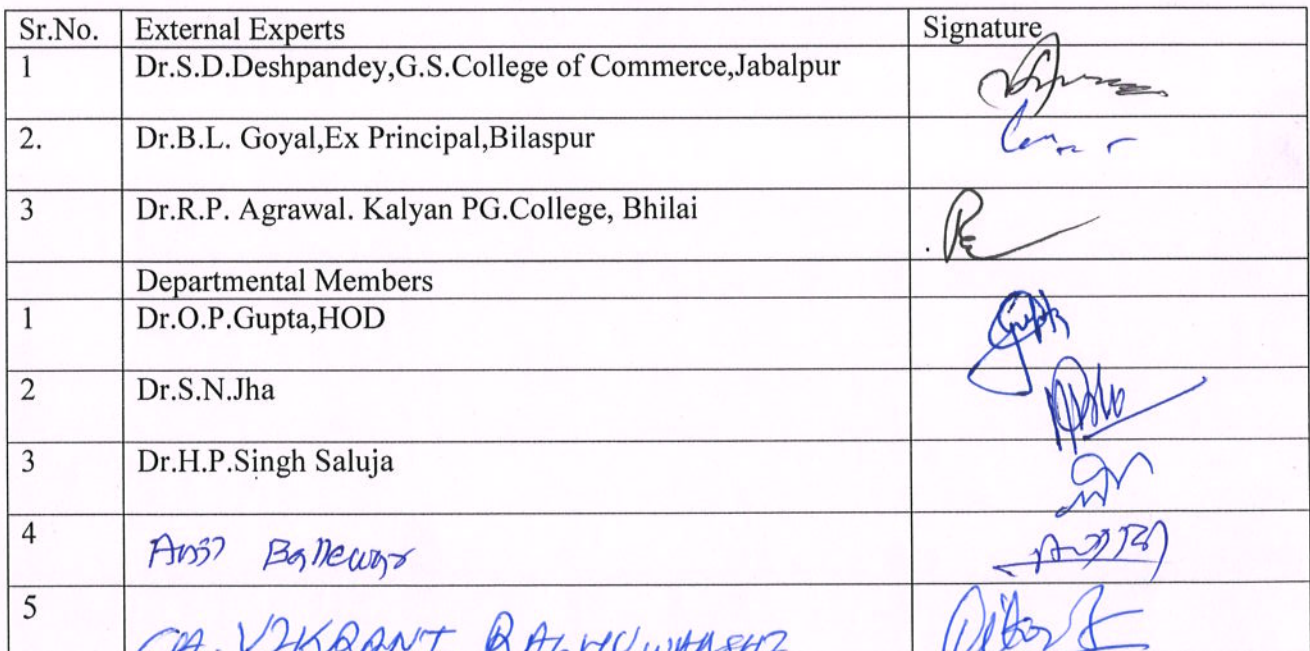 Sr.No. External Experts Signature
1 Dr.S.D.Deshpandey,G.S.College of Commerce,Jabalpur
2. Dr.B.L. Goyal,Ex Principal,Bilaspur
3 Dr.R.P. Agrawal. Kalyan PG.College, Bhilai
Departmental Members
1 Dr.O.P.Gupta,HOD Gupta
2 Dr.S.N.Jha
3 Dr.H.P.Singh Saluja
4
5 CA. VIKRANT